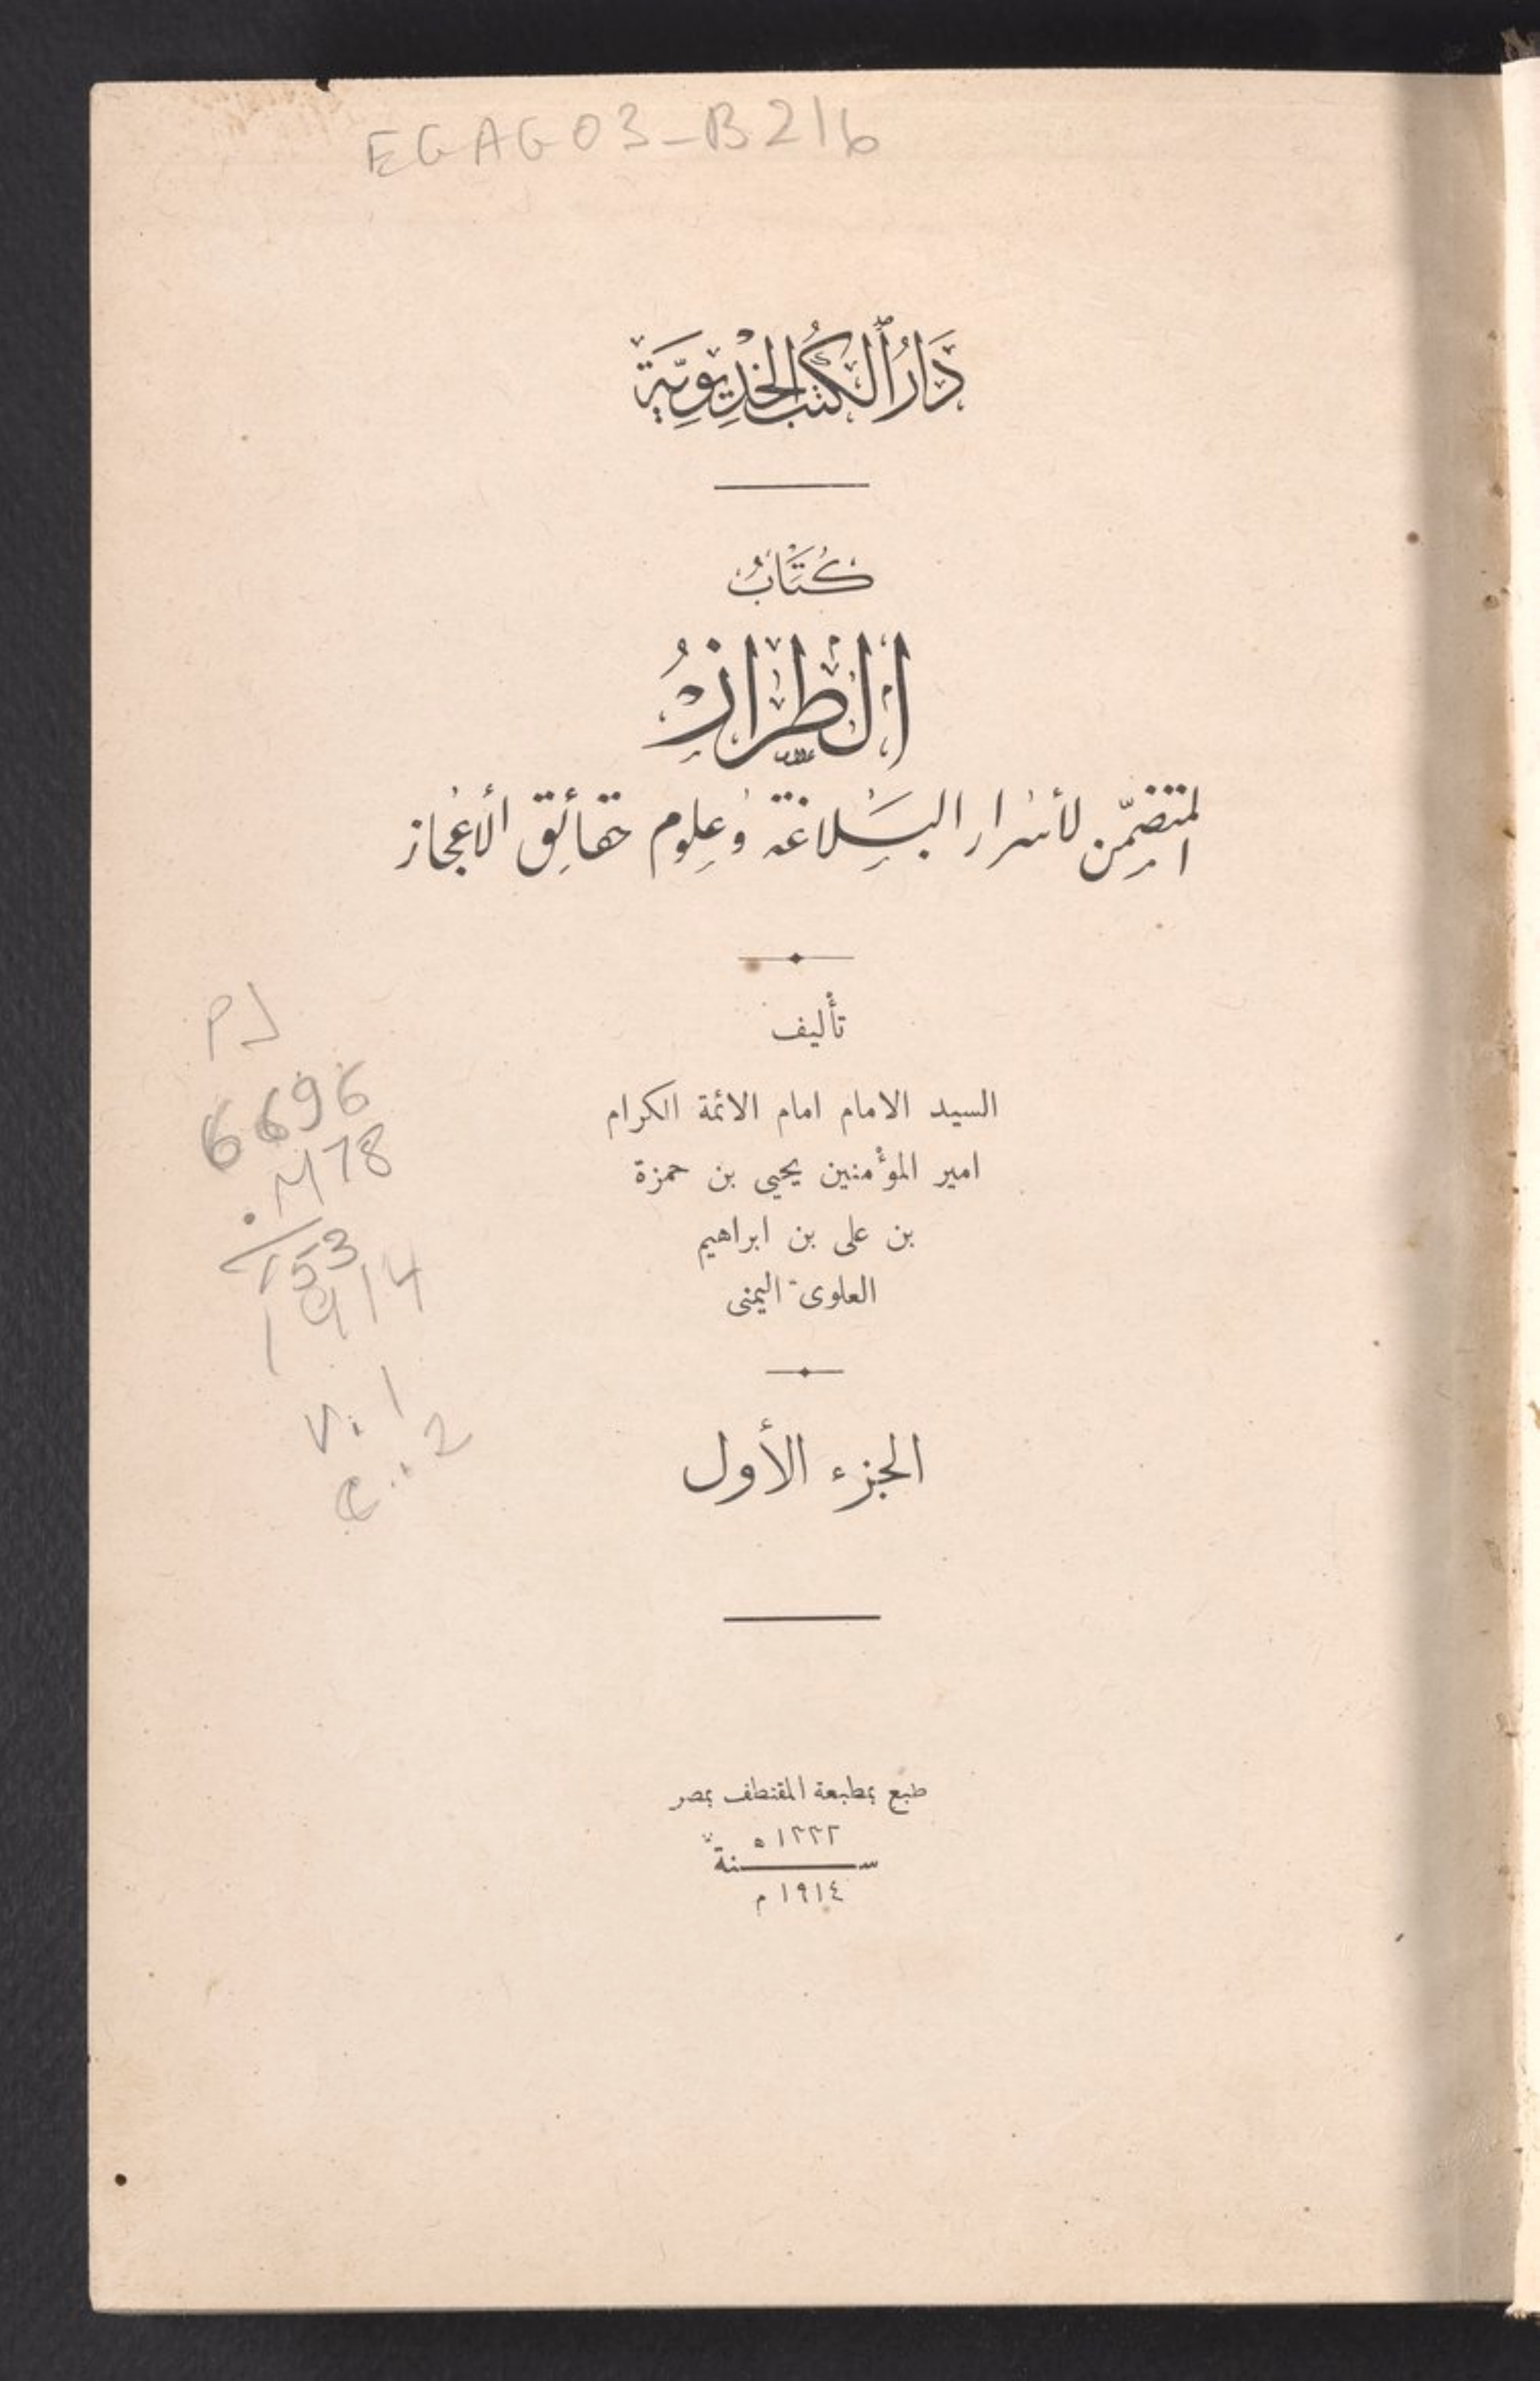 EGAG03-B216
دَارُ ٱلكُتُبِ الخِدِيْوِيَّةِ
كِتَابُ
الطِّرَازُ
المتضمّن لأسرار البلاغة وعلوم حقائق الأعجاز
تأليف
السيد الامام امام الائمة الكرام
امير المؤمنين يحيى بن حمزة
بن على بن ابراهيم
العلوى اليمنى
PJ
6696
.M78
153
1914
V.1
C.2
الجزء الأول
طبع بمطبعة المقتطف بمصر
١٣٣٢ ه
سنة
١٩١٤ م